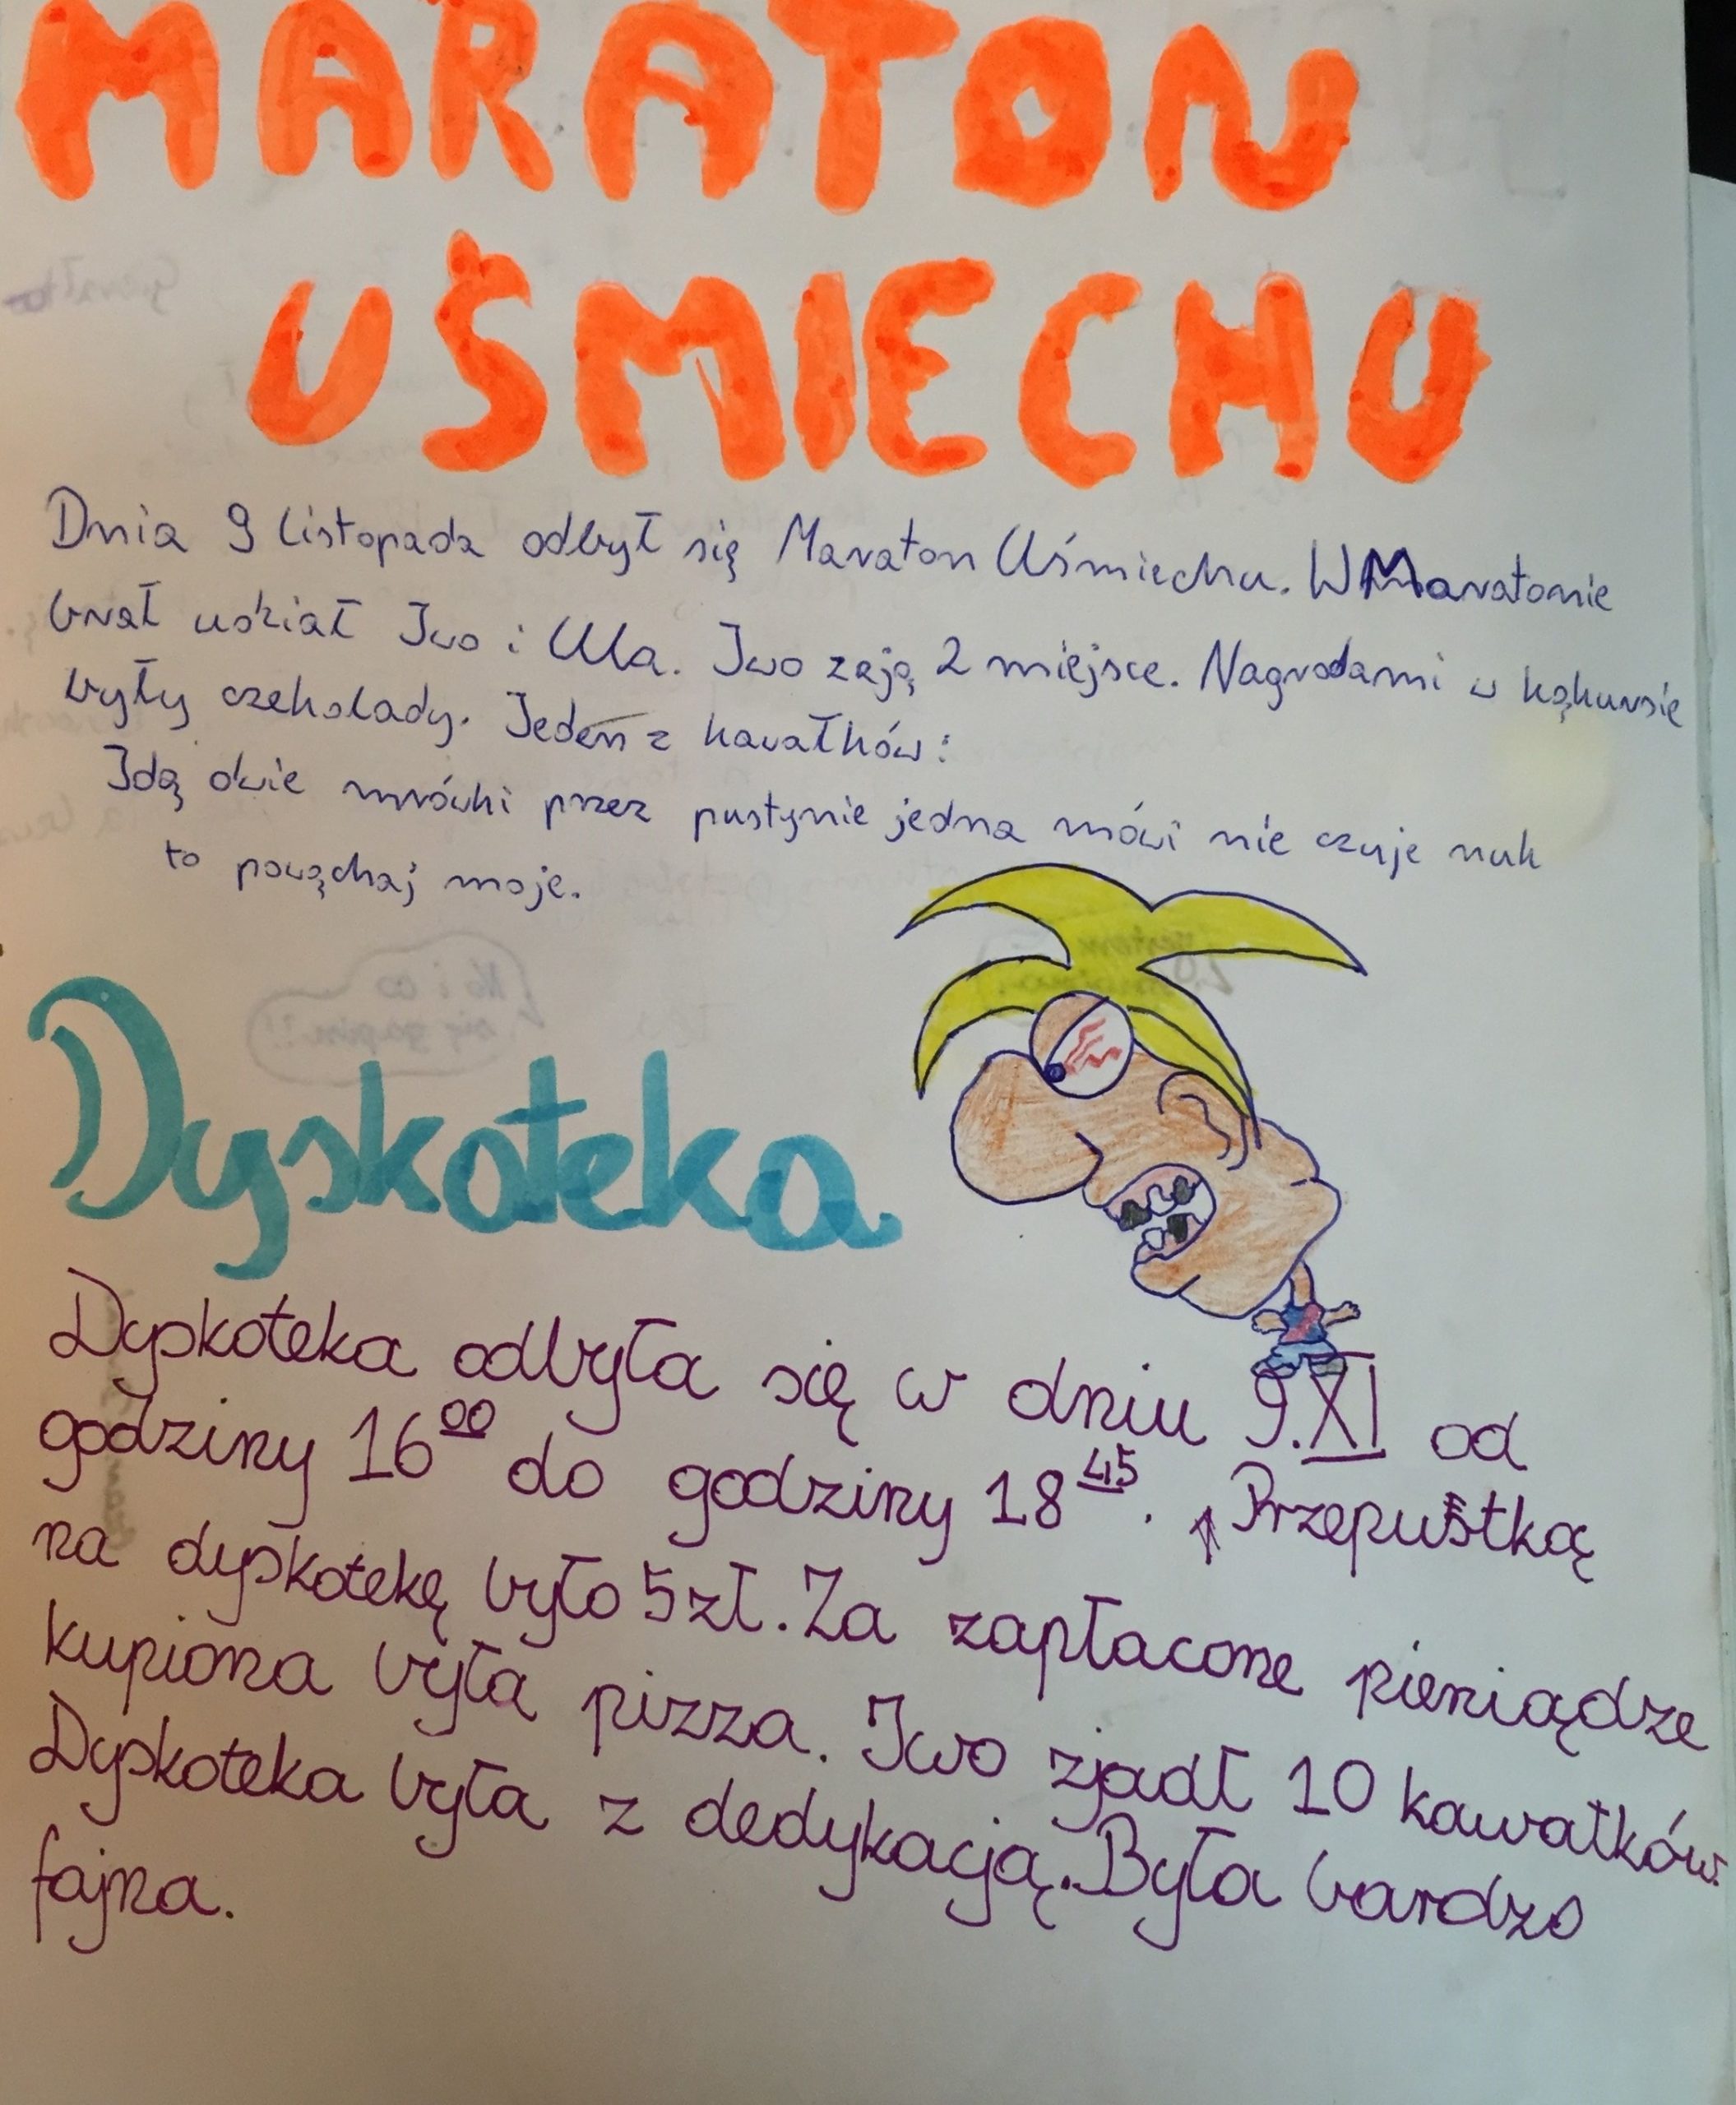 MARATON
UŚMIECHU
Dnia 9 listopada odbył się Maraton Uśmiechu. W Maratonie
brał udział Iwo i Ula. Iwo zają 2 miejsce. Nagrodami w kąkursie
były czekolady. Jeden z kawałków:
Idą dwie mrówki przez pustynie jedna mówi nie czuje nuk
to powąchaj moje.
No i co
się gapisz?!
Dyskoteka
Dyskoteka odbyła się w dniu 9.XI od
godziny 16⁰⁰ do godziny 18⁴⁵. ↑ Przepustką
na dyskotekę było 5 zł. Za zapłacone pieniądze
kupiona była pizza. Iwo zjadł 10 kawałków.
Dyskoteka była z dedykacją. Była bardzo
fajna.